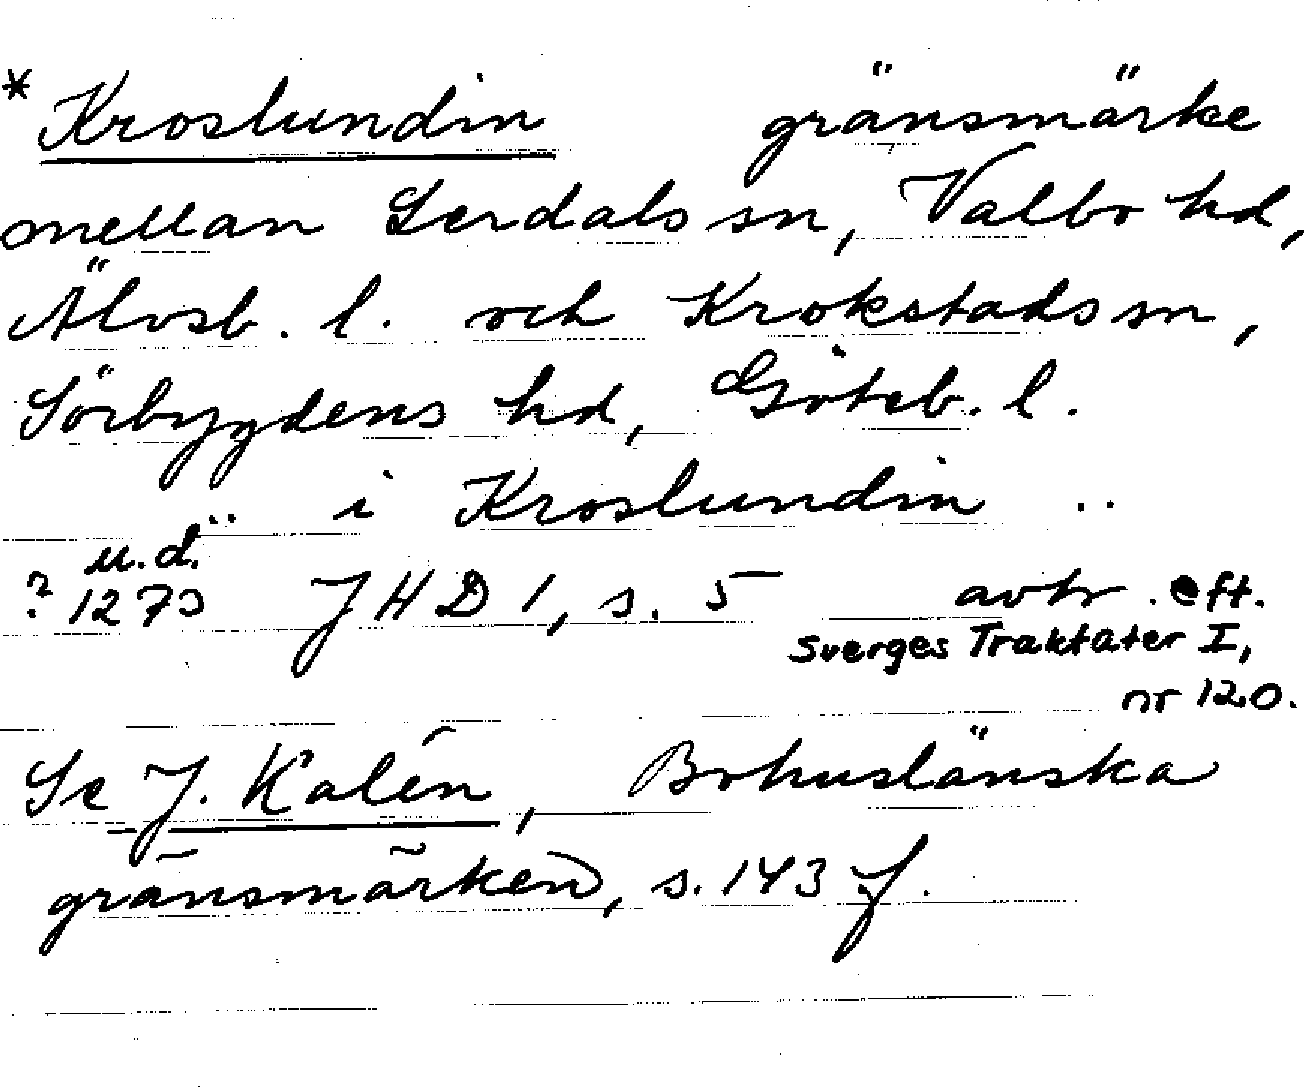 * Kroslundin gränsmärke
mellan Lerdals sn, Valbo hd,
Älvsb. l. och Krokstads sn,
Sörbygdens hd, Göteb. l.
.. i Kroslundin ..
u.d.
? 1273 JHD 1, s. 5 avtr. eft.
Sverges Traktater I,
nr 120.
Se J. Kalén, Bohuslänska
gränsmärken, s. 143 f.